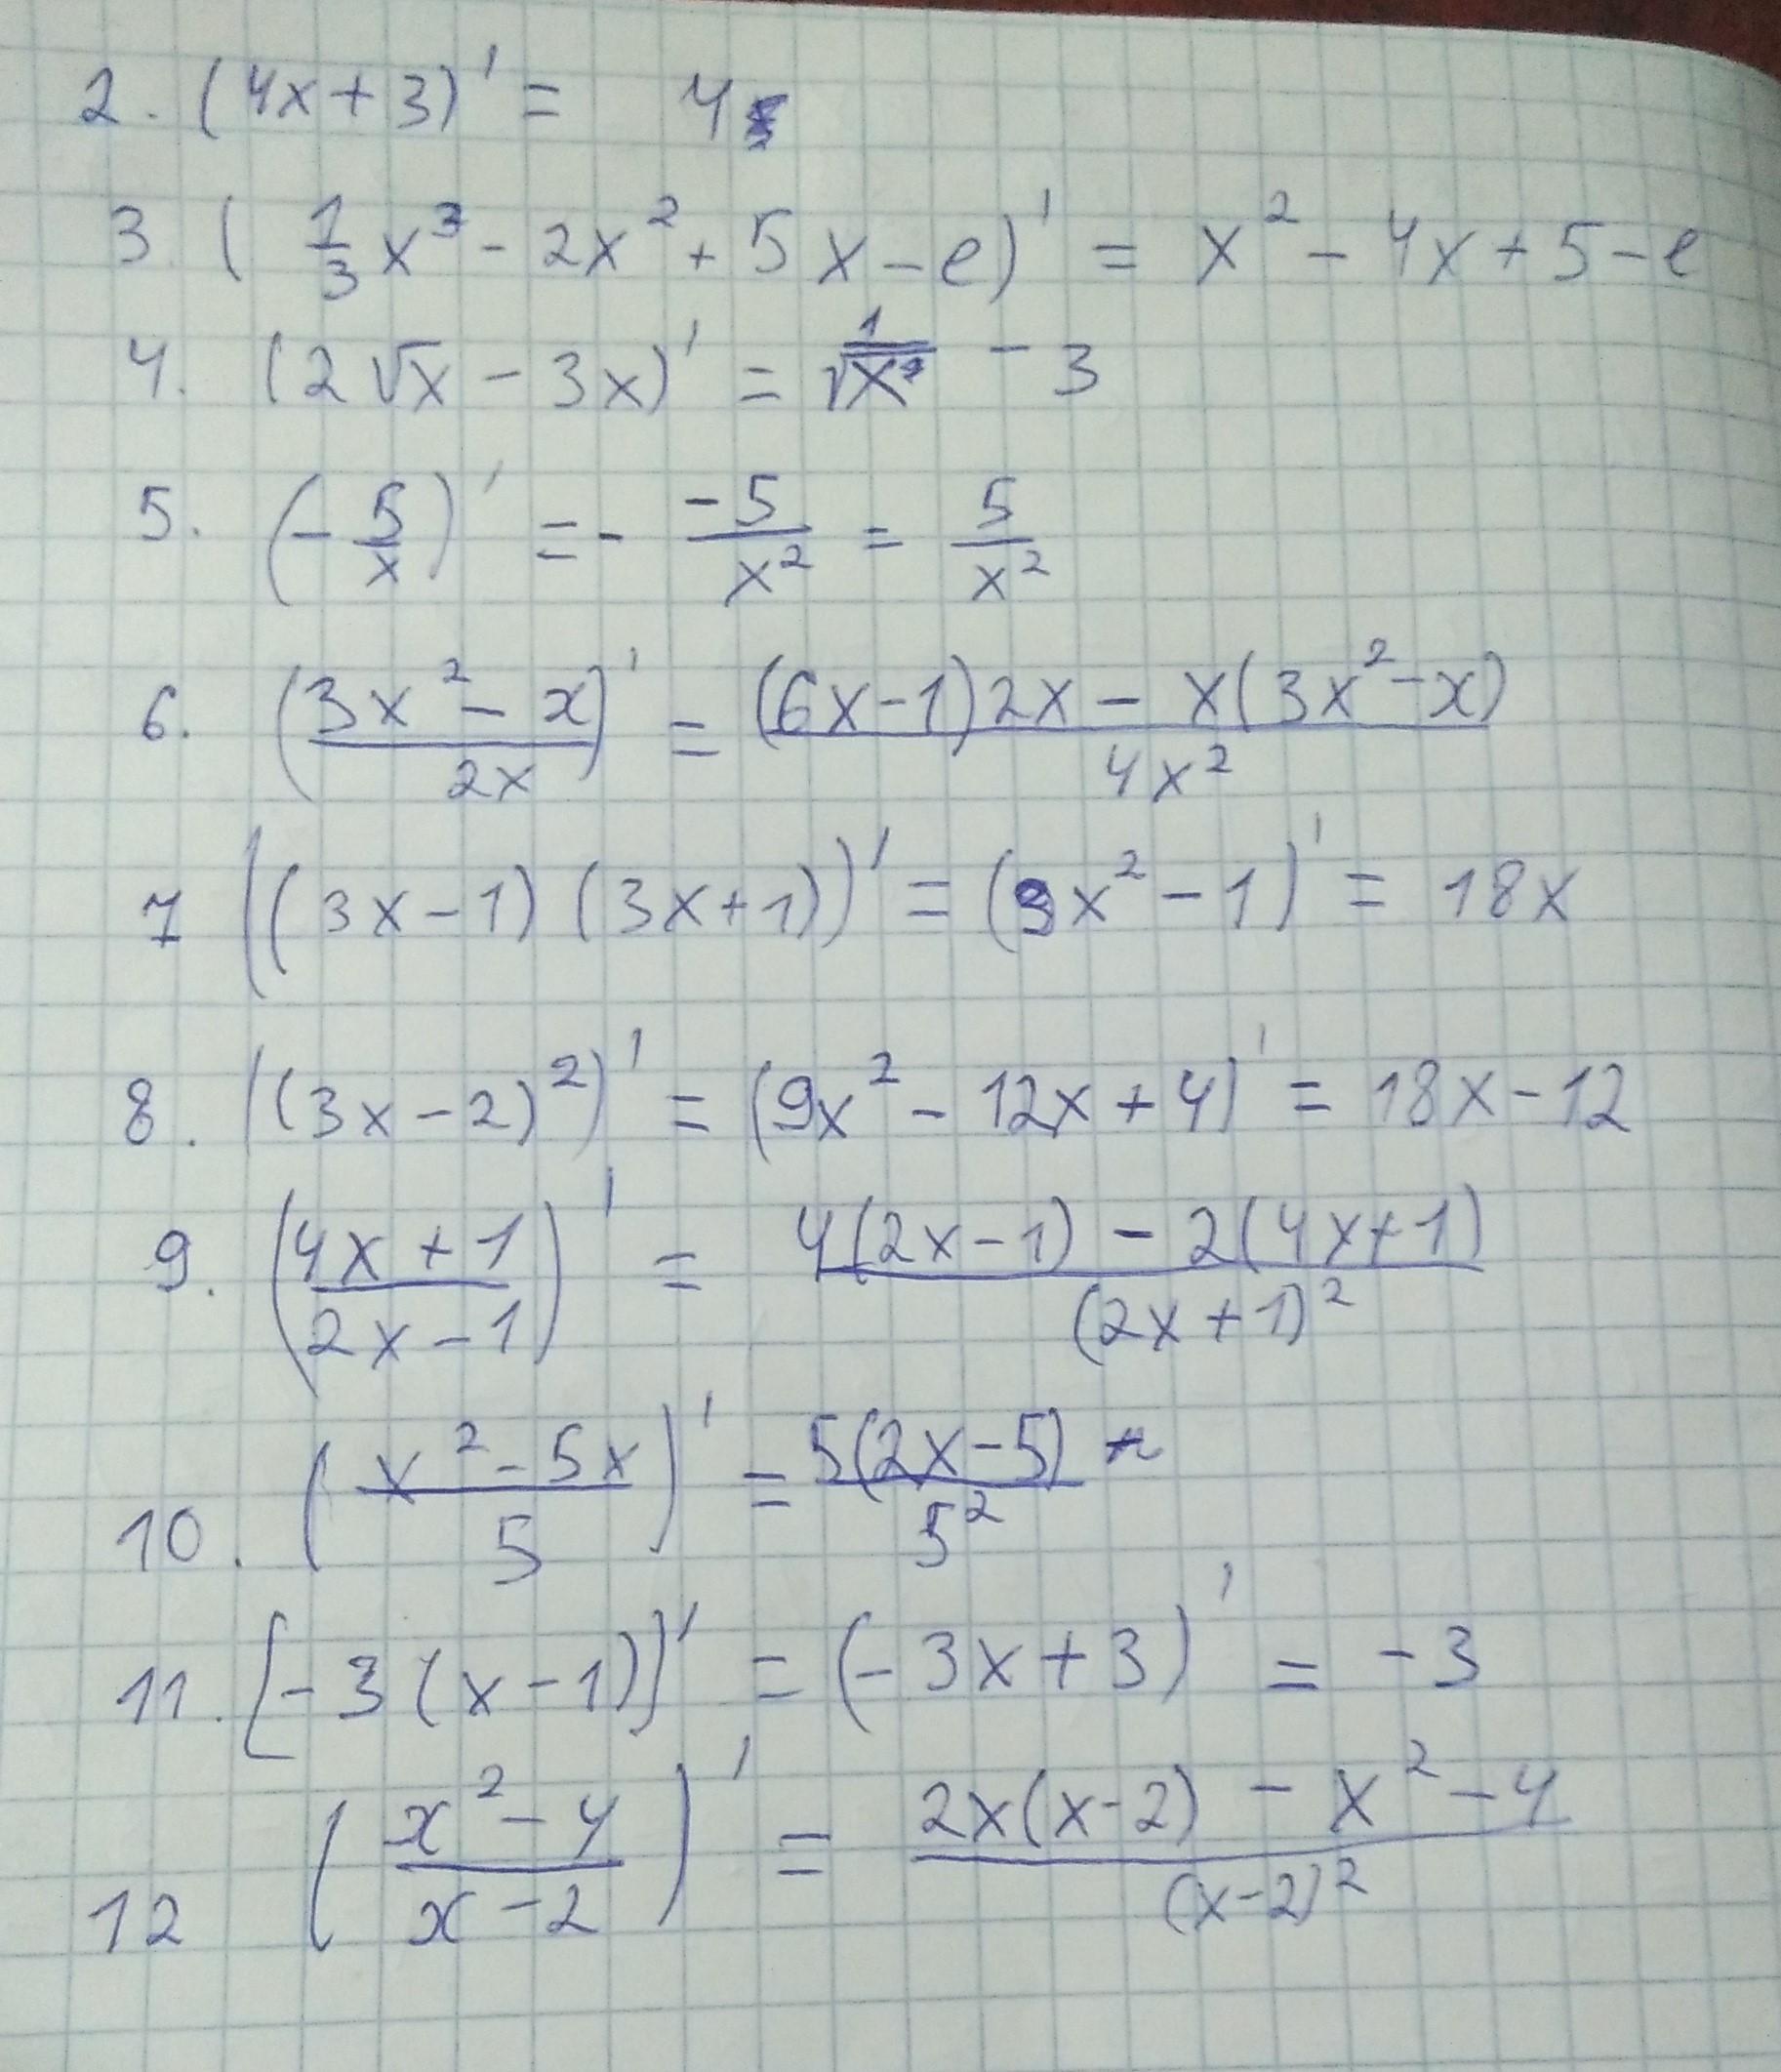 2. (4x+3)' = 4
3. (1/3 x³ - 2x² + 5x - e)' = x² - 4x + 5 - e
4. (2√x - 3x)' = 1/√x - 3
5. (- 5/x)' = - -5/x² = 5/x²
6. ((3x² - x)/2x)' = ((6x-1)2x - x(3x²-x))/4x²
7 ((3x-1)(3x+1))' = (9x²-1)' = 18x
8. ((3x-2)²)' = (9x² - 12x + 4)' = 18x-12
9. ((4x+1)/(2x-1))' = (4(2x-1) - 2(4x+1))/(2x+1)²
10. ((x²-5x)/5)' = 5(2x-5)/5²
11. [-3(x-1)]' = (-3x+3)' = -3
12 ((x²-4)/(x-2))' = (2x(x-2) - x²-4)/(x-2)²